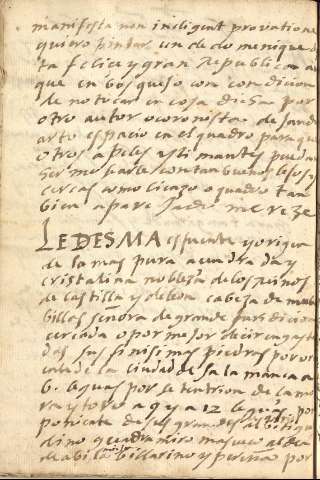 manifesta non indigent provatione
quiero pintar un dedo menique
ta felice y gran Republica
que en bosquejo con condicion
de no tocar en cosa dicha por
otro autor o coronista dejando
arto espacio en el quadro para que
otros apeles y timantes puedan
con tan buenos lejos y
cercas como licazo o quadro tan
bien aparejado merece
LEDESMA es fuente y origen
de la mas pura acendrada y
cristalina nobleza de los Reinos
de Castilla y de leon cabeza de
villas señora de grande jurisdicion
cercada o por mejor decir engasta
da sus finisimas piedras por
la ciudad de salamanca a
6. leguas por setentrion de
ra y toro a 9 y a 12 leguas por
de sus grandes
dino guadramiro masueco aldea
davila villarino y pereña por